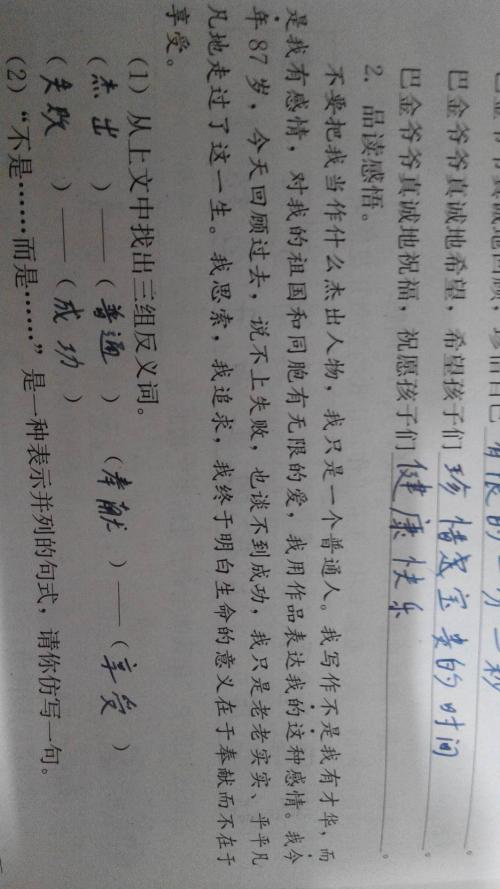 巴金爷爷真诚地希望，希望孩子们 珍惜宝贵的时间。
巴金爷爷真诚地祝福，祝愿孩子们 健康快乐。
2. 品读感悟。
不要把我当作什么杰出人物，我只是一个普通人。我写作不是我有才华，而
是我有感情，对我的祖国和同胞有无限的爱，我用作品表达我的这种感情。我今
年87岁，今天回顾过去，说不上失败，也谈不到成功，我只是老老实实、平平凡
凡地走过了这一生。我思索，我追求，我终于明白生命的意义在于奉献而不在于
享受。
（1）从上文中找出三组反义词。
（杰出）——（普通） （奉献）——（享受）
（失败）——（成功）
（2）“不是……而是……”是一种表示并列的句式，请你仿写一句。